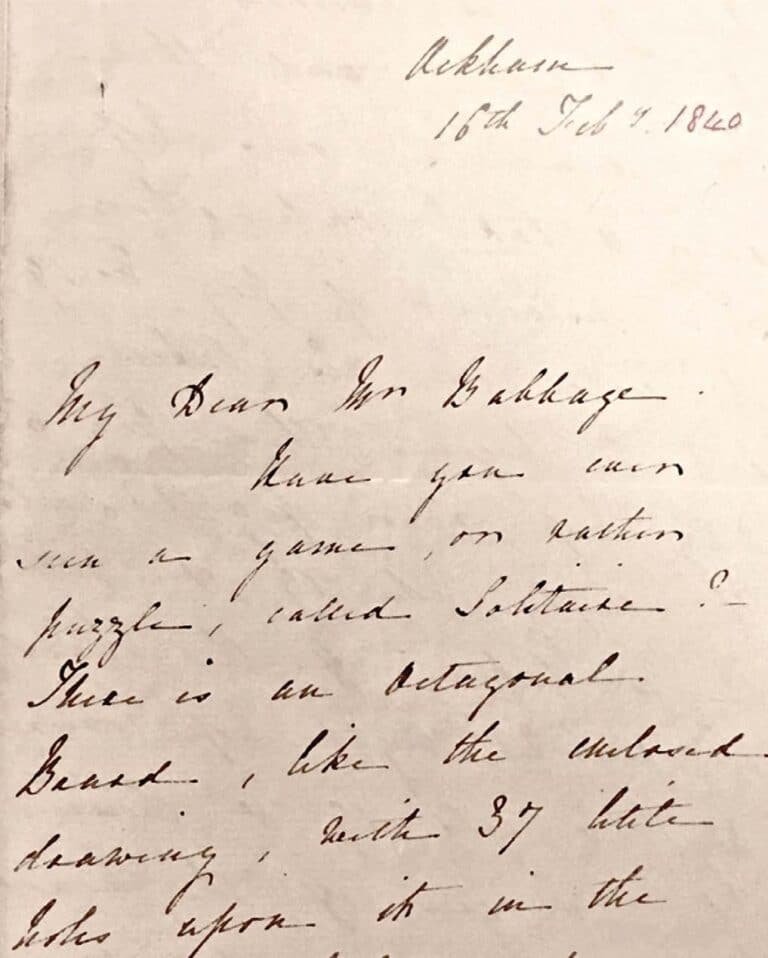 Ockham
16th Feby. 1840
My Dear Mr Babbage.
Have you ever
seen a game, or rather
puzzle, called Solitaire?-
There is an octagonal
Board, like the enclosed
drawing, with 37 little
holes upon it in the